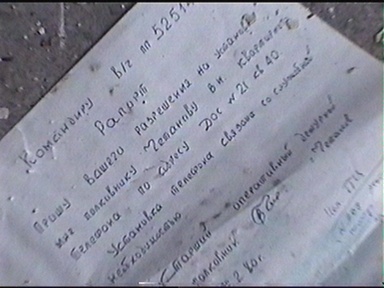 Командиру в/ч пп 5251
Рапорт
Прошу Вашего разрешения на установку
мне полковнику Чепанову в н. квартире
телефона по адресу ДОС №21 кв 40.
Установка телефона связана со служебной
необходимостью
Старший оперативный дежурный
полковник Чепанов